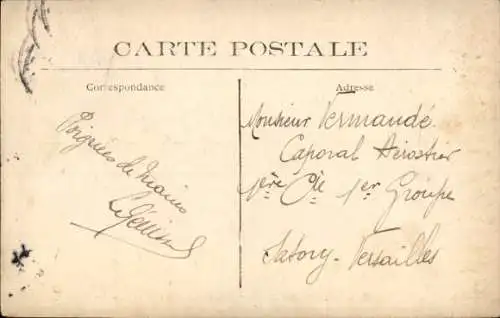 CARTE POSTALE
Correspondance
Adresse
Poignées de mains
Monsieur Vermandé
Caporal Aérostier
1ère Cie 1er Groupe
Satory-Versailles